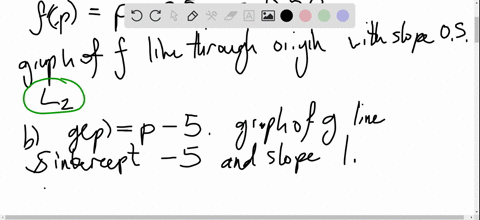 f(p) = p
graph of f line through origin with slope 0.5.
L2
b) g(p) = p - 5. graph of g line
S intercept -5 and slope 1.